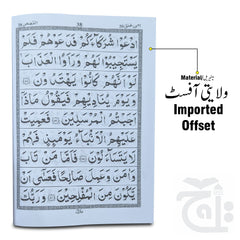 38
ادْعُوْا شُرَكَآءَكُمْ فَدَعَوْهُمْ فَلَمْ
يَسْتَجِيْبُوْا لَهُمْ وَرَاَوُا الْعَذَابَ
لَوْ اَنَّهُمْ كَانُوْا يَهْتَدُوْنَ
وَيَوْمَ يُنَادِيْهِمْ فَيَقُوْلُ مَاذَآ
اَجَبْتُمُ الْمُرْسَلِيْنَ فَعَمِيَتْ
عَلَيْهِمُ الْاَنْۢبَآءُ يَوْمَئِذٍ فَهُمْ
لَا يَتَسَآءَلُوْنَ فَاَمَّا مَنْ تَابَ
وَاٰمَنَ وَعَمِلَ صَالِحًا فَعَسٰٓى اَنْ
يَّكُوْنَ مِنَ الْمُفْلِحِيْنَ وَرَبُّكَ
Material مٹیریل
ولایتی آفسٹ
Imported
Offset